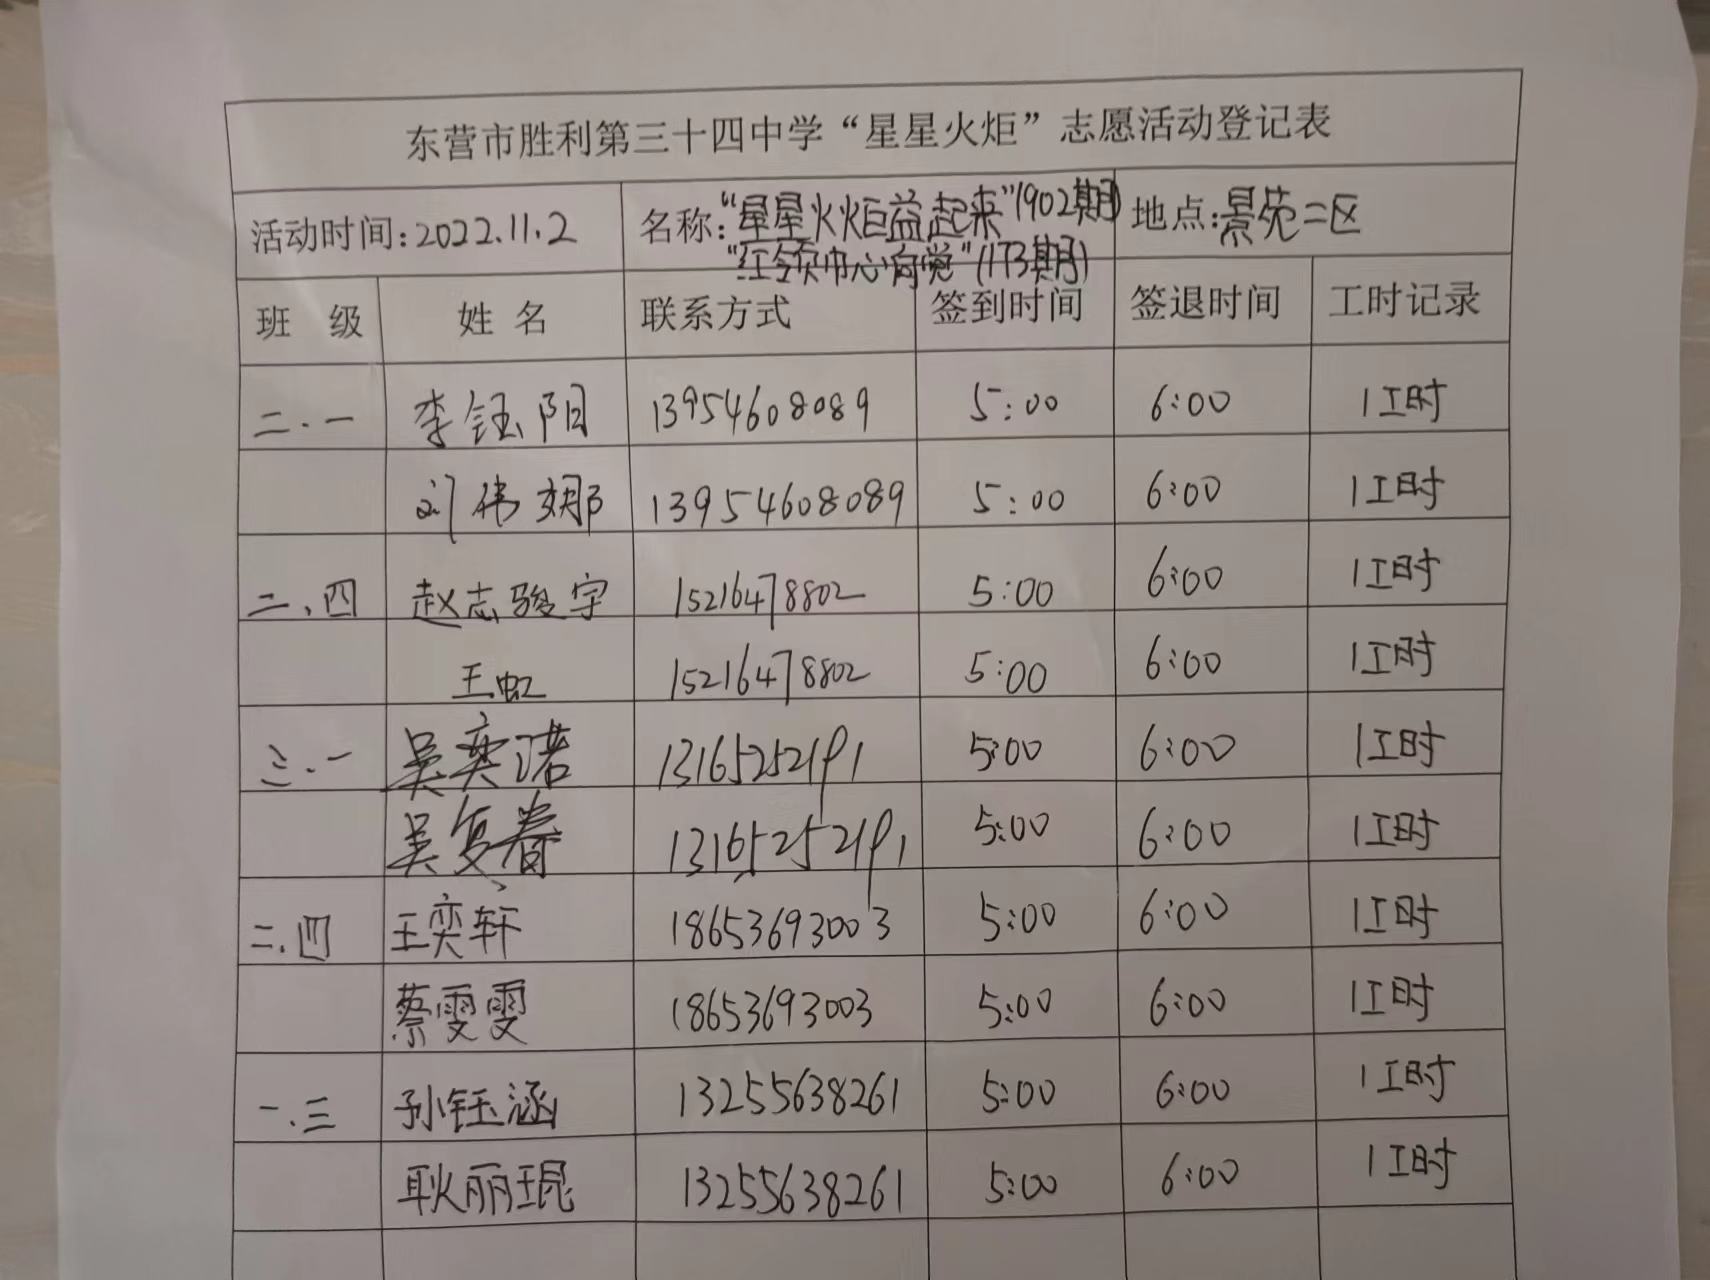 东营市胜利第三十四中学“星星火炬”志愿活动登记表
活动时间:2022.11.2 名称:“星星火炬益起来”1902期) 地点:景苑二区
“红领巾心向党”(173期)
班 级 姓 名 联系方式 签到时间 签退时间 工时记录
二.一 李钰阳 13954608089 5:00 6:00 1工时
刘伟娜 13954608089 5:00 6:00 1工时
二.四 赵志骏宇 15216478802 5:00 6:00 1工时
王虹 15216478802 5:00 6:00 1工时
三.一 吴奕诺 13165252191 5:00 6:00 1工时
吴复春 13165252191 5:00 6:00 1工时
二.四 王奕轩 18653693003 5:00 6:00 1工时
蔡雯雯 18653693003 5:00 6:00 1工时
一.三 孙钰涵 13255638261 5:00 6:00 1工时
耿丽琨 13255638261 5:00 6:00 1工时